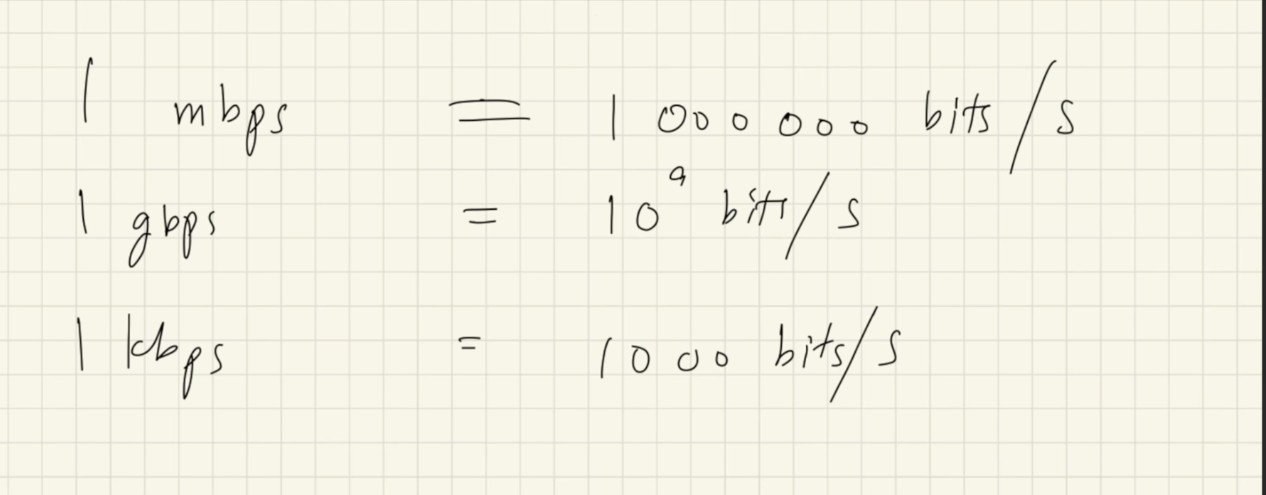 1 mbps = 1 000 000 bits/s
1 gbps = 10⁹ bits/s
1 kbps = 1000 bits/s